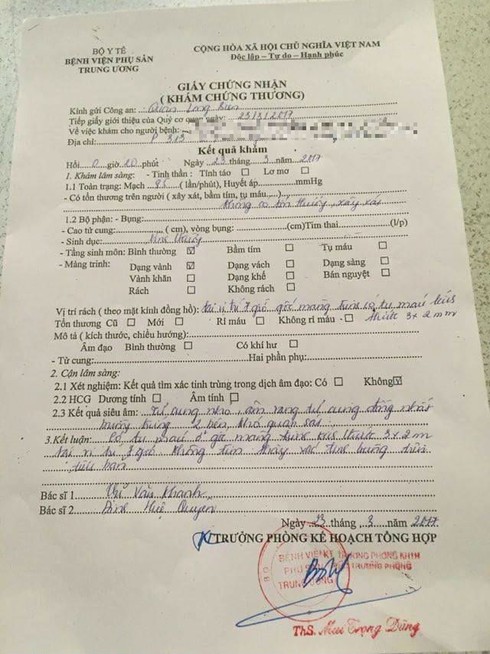 BỘ Y TẾ
BỆNH VIỆN PHỤ SẢN
TRUNG ƯƠNG
CỘNG HÒA XÃ HỘI CHỦ NGHĨA VIỆT NAM
Độc lập – Tự do – Hạnh phúc
GIẤY CHỨNG NHẬN
( KHÁM CHỨNG THƯƠNG)
Kính gửi Công an: Quận Long Biên
Tiếp giấy giới thiệu của Quý cơ quan ngày 23/3/2017
Về việc khám cho người bệnh:
Địa chỉ: P 313
Kết quả khám
Hồi 0 giờ 20 phút Ngày 23 tháng 3 năm 2017
1. Khám lâm sàng: - Tinh thần : Tỉnh táo Lơ mơ
1.1 Toàn trạng: Mạch (lần/phút), Huyết áp mmHg
- Có tổn thương trên người ( xây xát, bầm tím, tụ máu)
không có tổn thương, xây xát
1.2 Bộ phận: - Bụng:
- Cao tử cung (cm), vòng bụng: (cm)Tim thai (l/p)
- Sinh dục: Bình thường
- Tầng sinh môn: Bình thường Bầm tím Tụ máu
- Màng trinh: Dạng vành Dạng vách Dạng sàng
Vành khăn Dạng khế Bán nguyệt
Rách Không rách
Vị trí rách ( theo mặt kính đồng hồ): tại vị trí 7 giờ gốc màng trinh có tụ máu kích
Tổn thương Cũ Mới Rỉ máu Không rỉ máu - thước 3x2mm
Mô tả ( kích thước, chiều hướng)
Âm đạo Bình thường Có khí hư
- Tử cung: Hai phần phụ:
2. Cận lâm sàng:
2.1 Xét nghiệm: Kết quả tìm xác tinh trùng trong dịch âm đạo: Có Không
2.2 HCG Dương tính Âm tính
2.3 Kết quả siêu âm: Tử cung nhỏ, âm vang tử cung đồng nhất
buồng trứng 2 bên, khó quan sát
3.Kết luận: Có tụ máu ở gốc màng trinh kích thước 3x2m
tại vị trí 7 giờ. Không tìm thấy xác tinh trùng trên
tiêu bản
Bác sĩ 1 Vũ Văn Khanh
Bác sĩ 2
Ngày 23 tháng 3 năm 2017
TRƯỞNG PHÒNG KẾ HOẠCH TỔNG HỢP
BỆNH VIỆN
PHỤ SẢN
TRUNG ƯƠNG
ThS. Mai Trọng Dũng